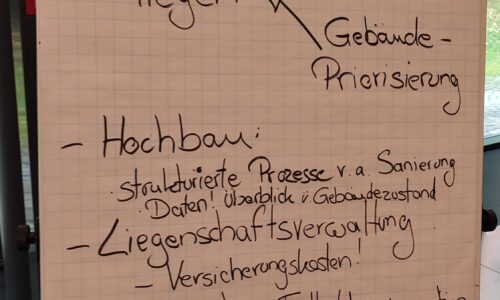 Gebäude-
Priorisierung
- Hochbau:
· strukturierte Prozesse v.a. Sanierung
· Daten! Überblick ü Gebäudezustand
- Liegenschaftsverwaltung
- Versicherungskosten!